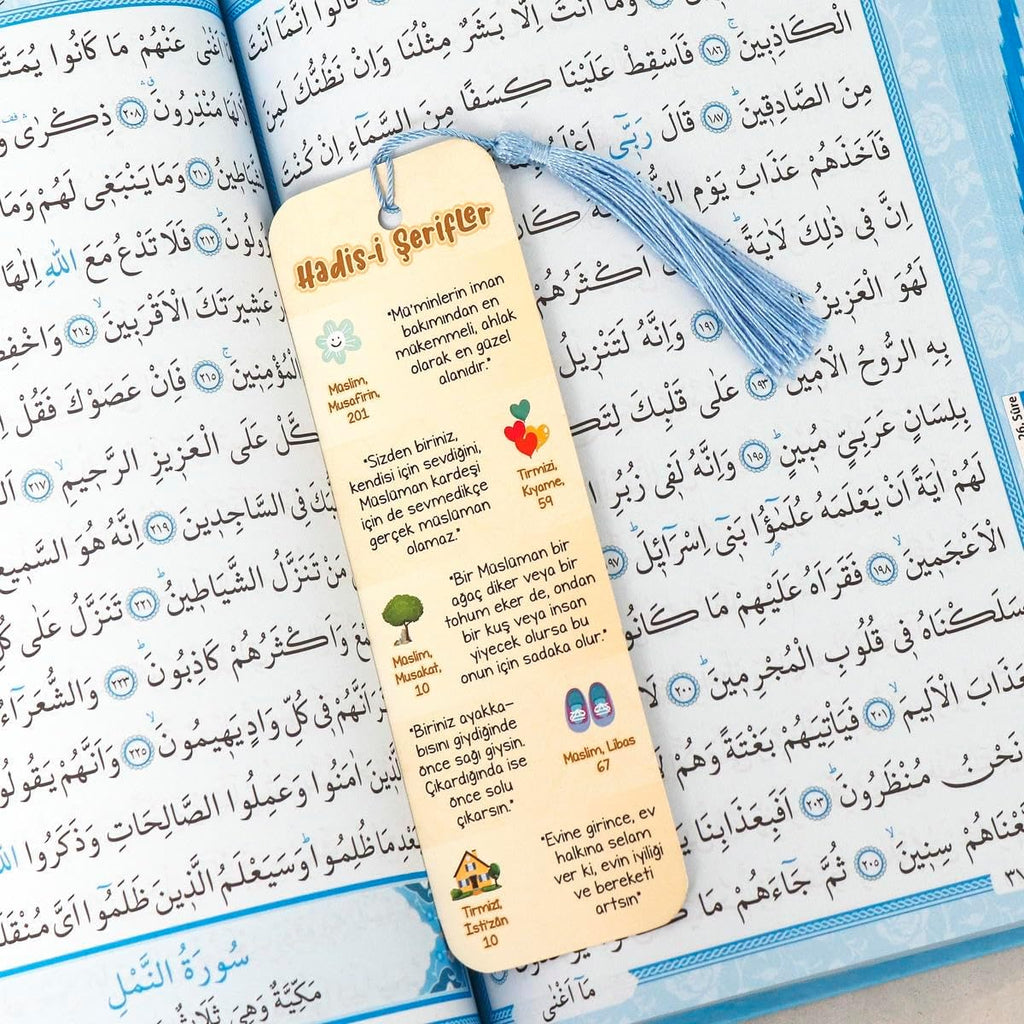 Hadis-i Şerifler
"Mü'minlerin iman
bakımından en
mükemmeli, ahlak
olarak en güzel
alanıdır."
Müslim,
Musafirin,
201
"Sizden biriniz,
kendisi için sevdiğini,
Müslüman kardeşi
için de sevmedikçe
gerçek müslüman
olamaz."
Tirmizi,
Kıyame,
59
"Bir Müslüman bir
ağaç diker veya bir
tohum eker de, ondan
bir kuş veya insan
yiyecek olursa bu
onun için sadaka olur."
Müslim,
Musakat,
10
"Biriniz ayakka-
bısını giydiğinde
önce sağı giysin.
Çıkardığında ise
önce solu
çıkarsın."
Müslim, Libas
67
"Evine girince, ev
halkına selam
ver ki, evin iyiliği
ve bereketi
artsın"
Tirmizî,
İsti'zân
10
قَالُوا اِنَّمَٓا اَنْتَ
وَمَٓا اَنْتَ اِلَّا بَشَرٌ مِثْلُنَا وَاِنْ نَظُنُّكَ لَمِنَ
الْكَاذِبِينَ ﴿١٨٦﴾ فَاَسْقِطْ عَلَيْنَا كِسَفًا مِنَ السَّمَٓاءِ اِنْ كُنْتَ
مِنَ الصَّادِقِينَ ﴿١٨٧﴾ قَالَ رَبِّٓى اَعْلَمُ
فَاَخَذَهُمْ عَذَابُ يَوْمِ الظُّلَّةِ
اِنَّ فِى ذٰلِكَ لَاٰيَةً وَمَا كَانَ اَكْثَرُهُمْ
لَهُوَ الْعَزِيزُ ﴿١٩١﴾ وَاِنَّهُ لَتَنْزِيلُ
بِهِ الرُّوحُ الْاَمِينُ ﴿١٩٣﴾ عَلٰى قَلْبِكَ
بِلِسَانٍ عَرَبِىٍّ مُبِينٍ ﴿١٩٥﴾ وَاِنَّهُ لَفِى زُبُرِ
لَهُمْ اٰيَةً اَنْ يَعْلَمَهُ عُلَمٰٓؤُا بَنِٓى اِسْرَٓائِيلَ
الْاَعْجَمِينَ ﴿١٩٨﴾ فَقَرَاَهُ عَلَيْهِمْ مَا كَانُوا
سَلَكْنَاهُ فِى قُلُوبِ الْمُجْرِمِينَ ﴿٢٠٠﴾ لَا
الْعَذَابَ الْاَلِيمَ ﴿٢٠١﴾ فَيَاْتِيَهُمْ بَغْتَةً وَهُمْ
نَحْنُ مُنْظَرُونَ ﴿٢٠٣﴾ اَفَبِعَذَابِنَا
سِنِينَ ﴿٢٠٥﴾ ثُمَّ جَٓاءَهُمْ مَا
مَٓا اَغْنٰى
26. Sûre
اَغْنٰى عَنْهُمْ مَا كَانُوا
لَهَا مُنْذِرُونَ ﴿٢٠٨﴾ ذِكْرٰى
الشَّيَاطِينُ ﴿٢١٠﴾ وَمَا يَنْبَغِى لَهُمْ وَمَا
﴿٢١٢﴾ فَلَا تَدْعُ مَعَ اللّٰهِ اِلٰهًا
عَشِيرَتَكَ الْاَقْرَبِينَ ﴿٢١٤﴾ وَاخْفِضْ
الْمُؤْمِنِينَ ﴿٢١٥﴾ فَاِنْ عَصَوْكَ فَقُلْ
عَلَى الْعَزِيزِ الرَّحِيمِ ﴿٢١٧﴾
فِى السَّاجِدِينَ ﴿٢١٩﴾ اِنَّهُ هُوَ السَّمِيعُ
مَنْ تَنَزَّلُ الشَّيَاطِينُ ﴿٢٢١﴾ تَنَزَّلُ عَلٰى كُلِّ
وَاَكْثَرُهُمْ كَاذِبُونَ ﴿٢٢٣﴾ وَالشُّعَرَٓاءُ
اَنَّهُمْ فِى كُلِّ وَادٍ يَهِيمُونَ ﴿٢٢٥﴾ وَاَنَّهُمْ يَقُولُونَ
الَّذِينَ اٰمَنُوا وَعَمِلُوا الصَّالِحَاتِ وَذَكَرُوا
مَا ظُلِمُوا وَسَيَعْلَمُ الَّذِينَ ظَلَمُٓوا اَىَّ مُنْقَلَبٍ
سُورَةُ النَّمْلِ
مَكِّيَّةٌ وَهِىَ